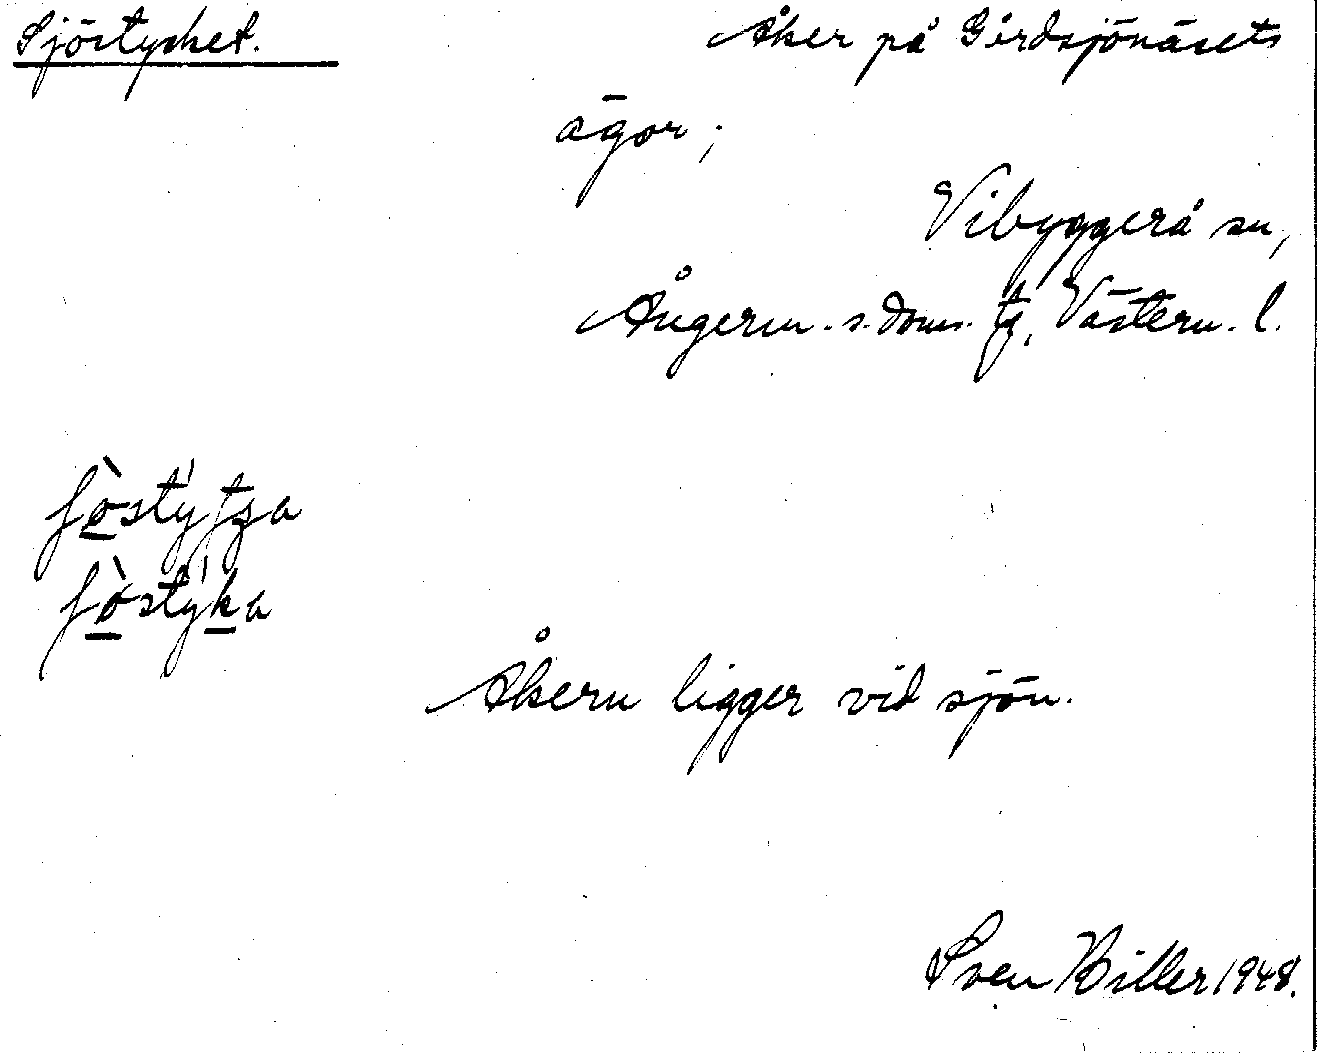 Sjöstycket. Åker på Gårdsjönäsets
ägor;
Vibyggerå sn,
Ångerm. s. doms. tg, Västern. l.
Åkern ligger vid sjön.
Sven Hiller 1948.